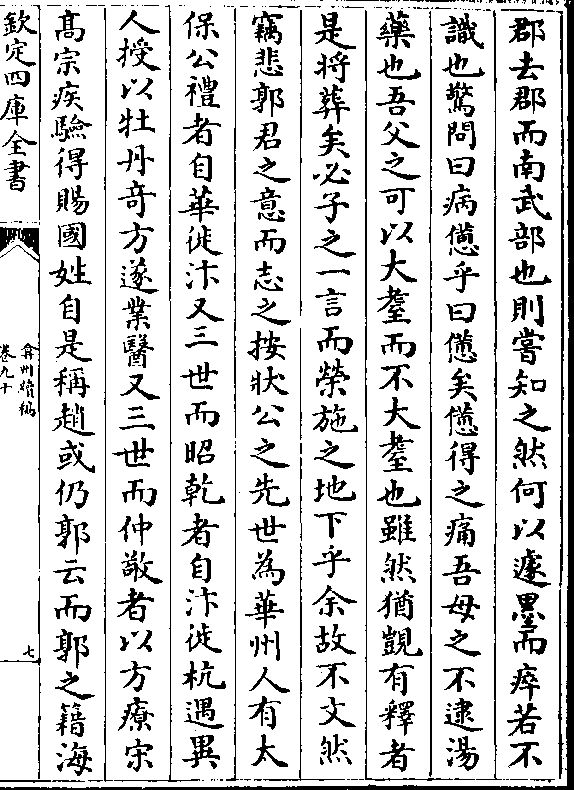 郡去郡而南武部也則嘗知之然何以遽墨而瘁若不
識也驚問曰病憊乎曰憊矣憊得之痛吾母之不逮湯
藥也吾父之可以大耋而不大耋也雖然猶覬有釋者
是将葬矣必子之一言而榮施之地下乎余故不文然
竊悲郭君之意而志之按狀公之先世為華州人有太
保公禮者自華徙汴又三世而昭乾者自汴徙杭遇異
人授以牡丹奇方遂業醫又三世而仲敬者以方療宋
髙宗疾驗得賜國姓自是稱趙或仍郭云而郭之籍海
欽定四庫全書
弇州續稿
卷九十
七